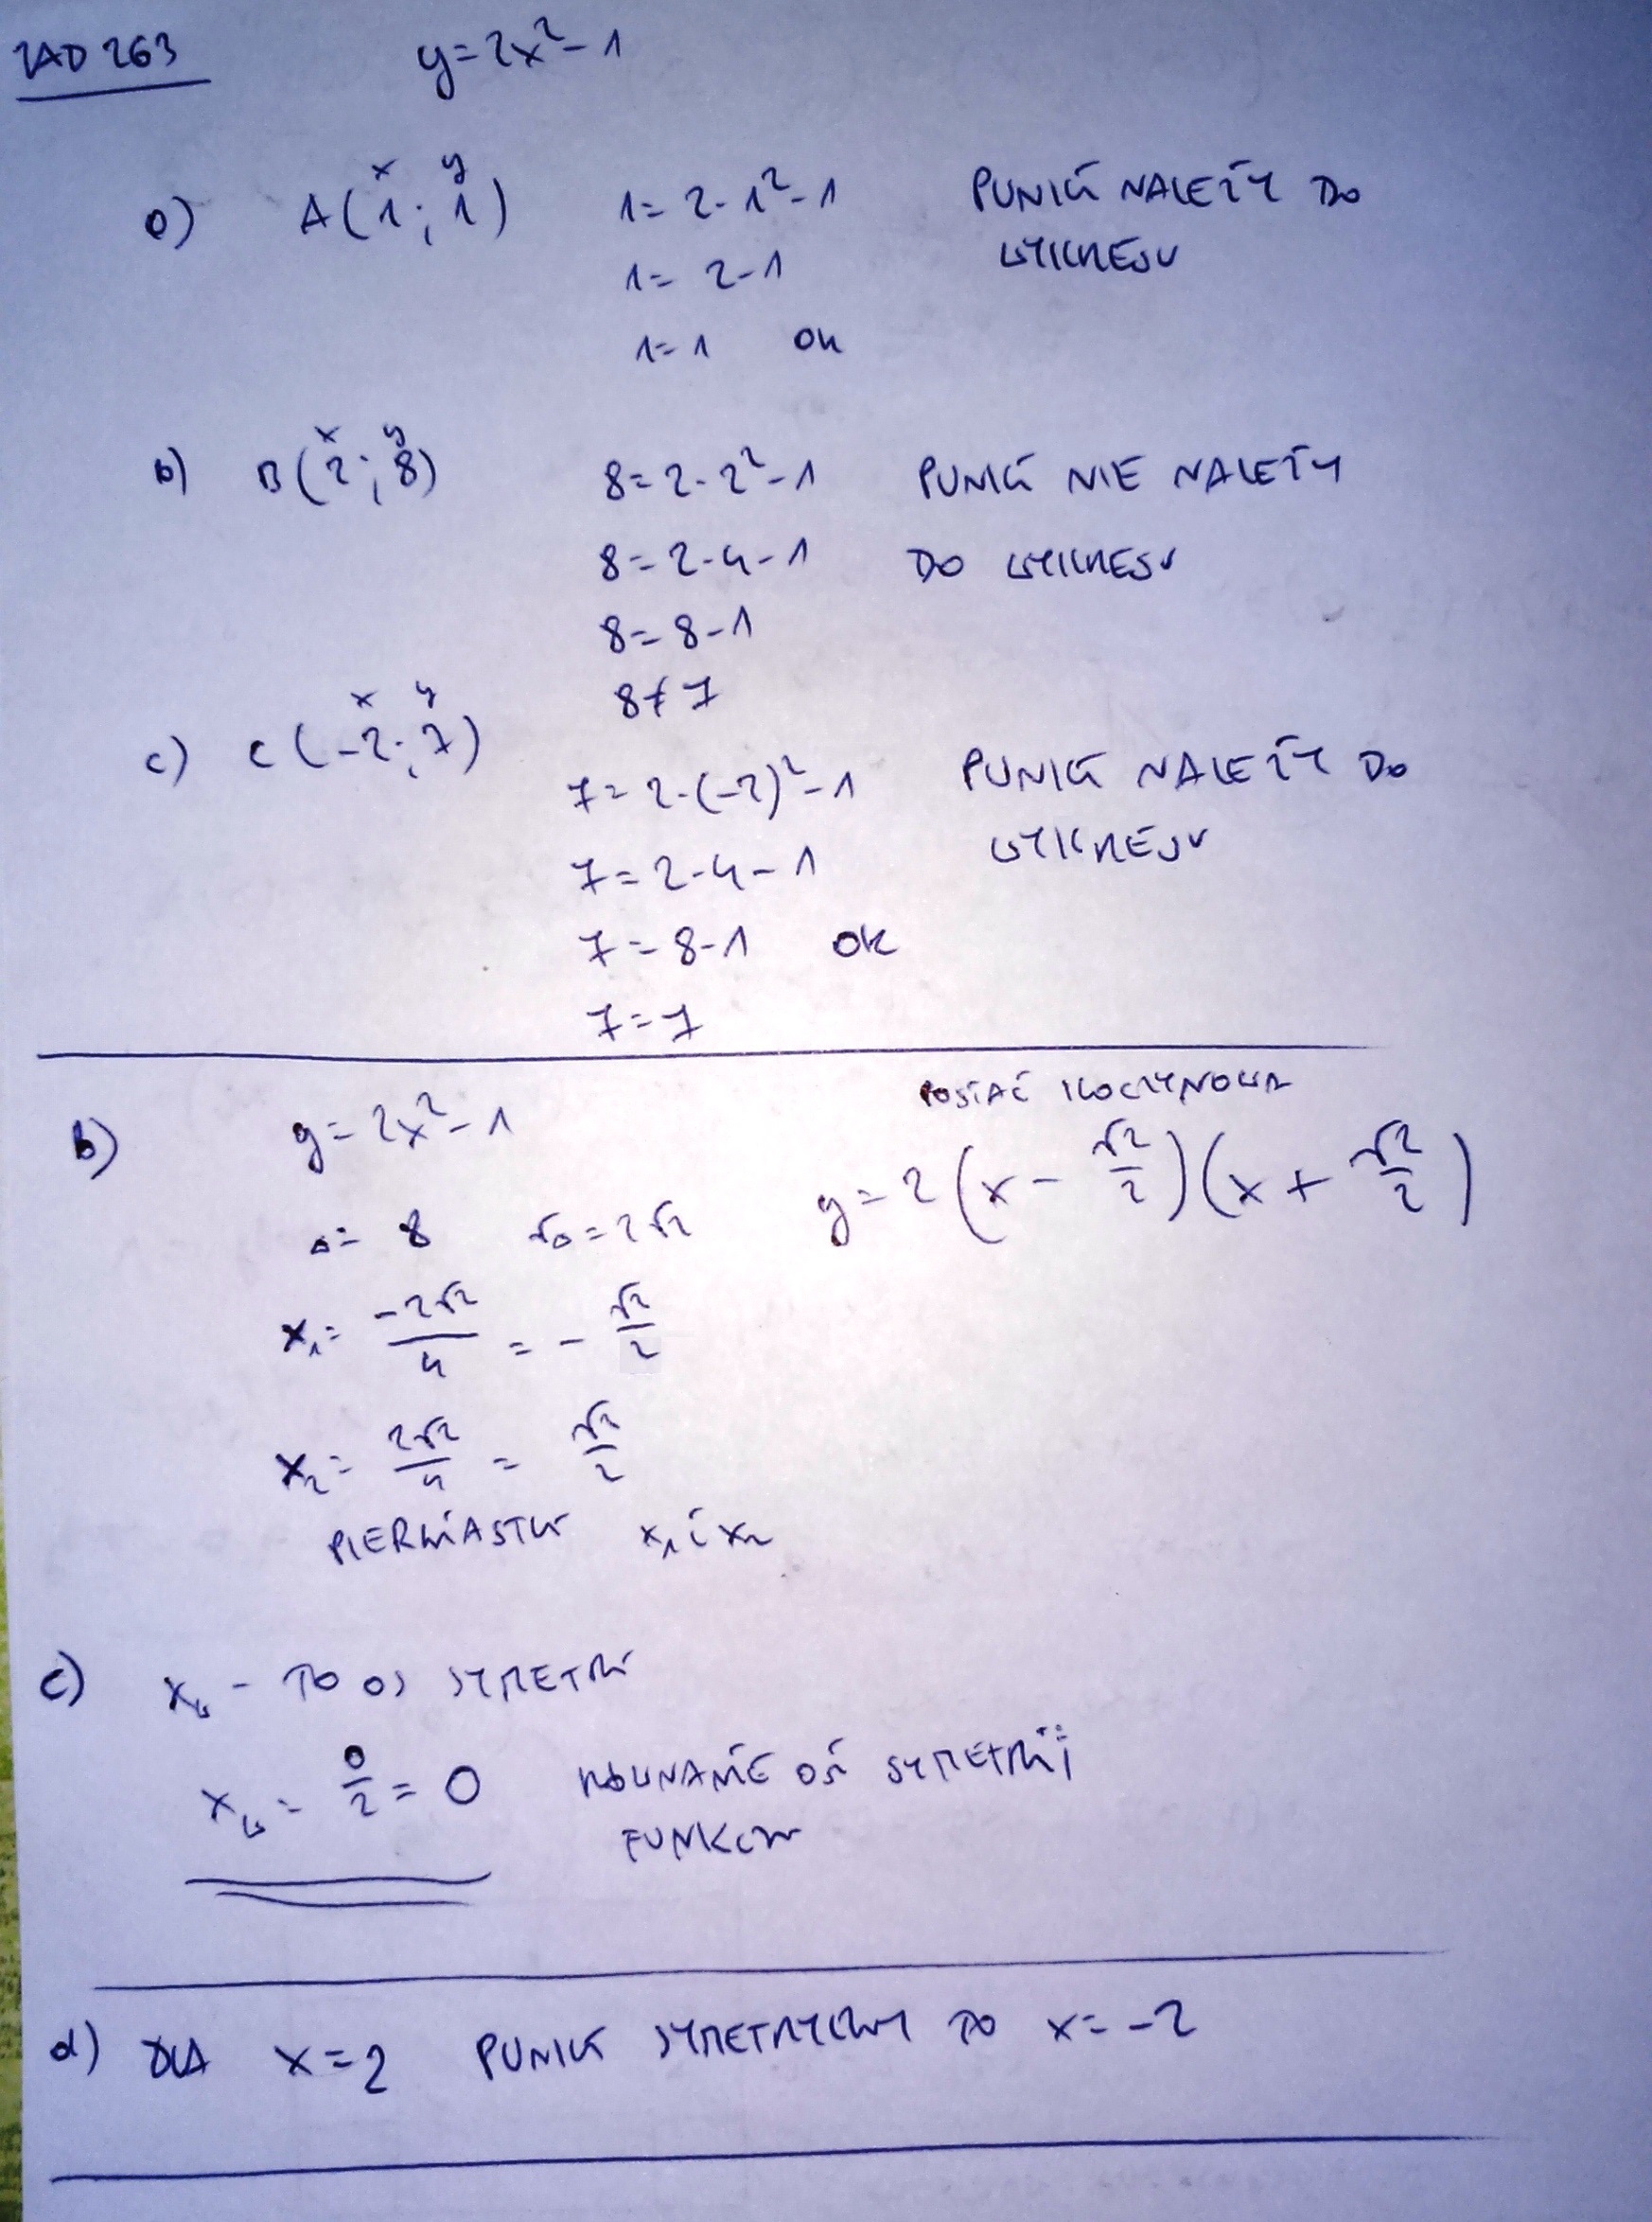 ZAD 263 y=2x²-1
a) A(1;1) 1=2·1²-1 PUNKT NALEŻY DO
x y
1=2-1 WYKRESU
1=1 OK
x y
b) B(2;8) 8=2·2²-1 PUNKT NIE NALEŻY
8=2·4-1 DO WYKRESU
8=8-1
8≠7
x y
c) C(-2;7)
7=2·(-2)²-1 PUNKT NALEŻY DO
7=2·4-1 WYKRESU
7=8-1 OK
7=7
POSTAĆ ILOCZYNOWA
b) y=2x²-1
y=2(x-√2/2)(x+√2/2)
Δ=8 √Δ=2√2
x₁=-2√2/4=-√2/2
x₂=2√2/4=√2/2
PIERWIASTKI x₁ i x₂
c) xw - TO OŚ SYMETRII
xw=0/2=0 RÓWNANIE OSI SYMETRII
FUNKCJI
d) DLA x=2 PUNKT SYMETRYCZNY TO x=-2